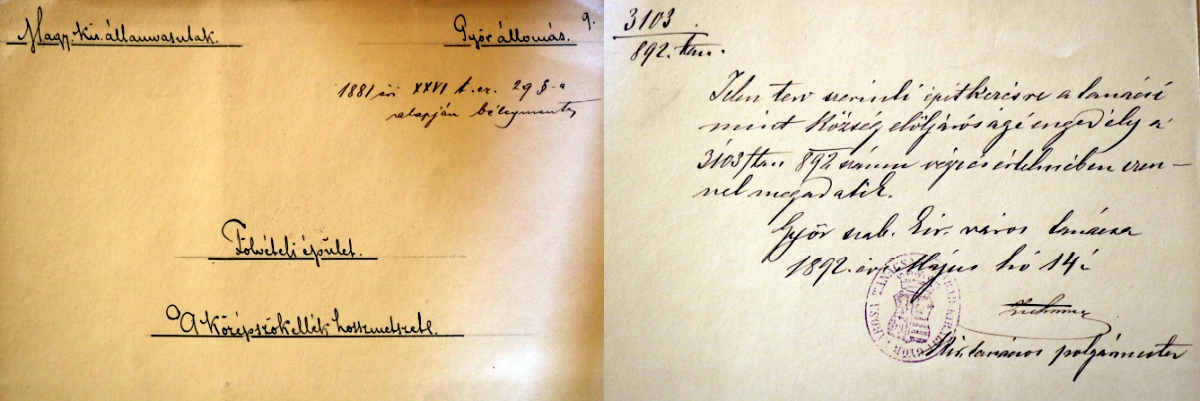 Magy. kir. államvasutak.
Győr állomás.
9.
1881 évi XXVI t. cz. 29 §-a
alapján bélyegmentes
Fölvételi épület.
A középszökellék hosszmetszete.
3103
892. tan.
Jelen terv szerinti építkezésre a tanácsi
mint község elöljárósági engedély a
3103/tan 892 számu végzés értelmében ezen-
nel megadatik.
Győr szab. kir. város tanácsa
1892. évi Május hó 14én
kir. tanácsos polgármester